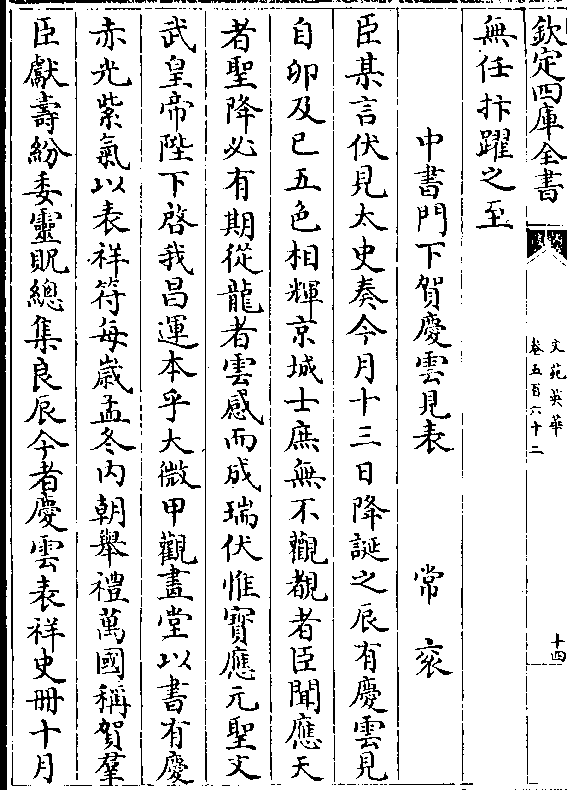 欽定四庫全書
文苑英華
卷五百六十二
十四
無任抃躍之至
中書門下賀慶雲見表 常袞
臣某言伏見太史奏今月十三日降誕之辰有慶雲見
自卯及巳五色相輝京城士庶無不觀覩者臣聞應天
者聖降必有期從龍者雲感而成瑞伏惟寶應元聖文
武皇帝陛下啓我昌運本乎大微甲觀畫堂以書有慶
赤光紫氣以表祥符每歲孟冬内朝舉禮萬國稱賀羣
臣獻壽紛委靈貺總集良辰今者慶雲表祥史冊十月